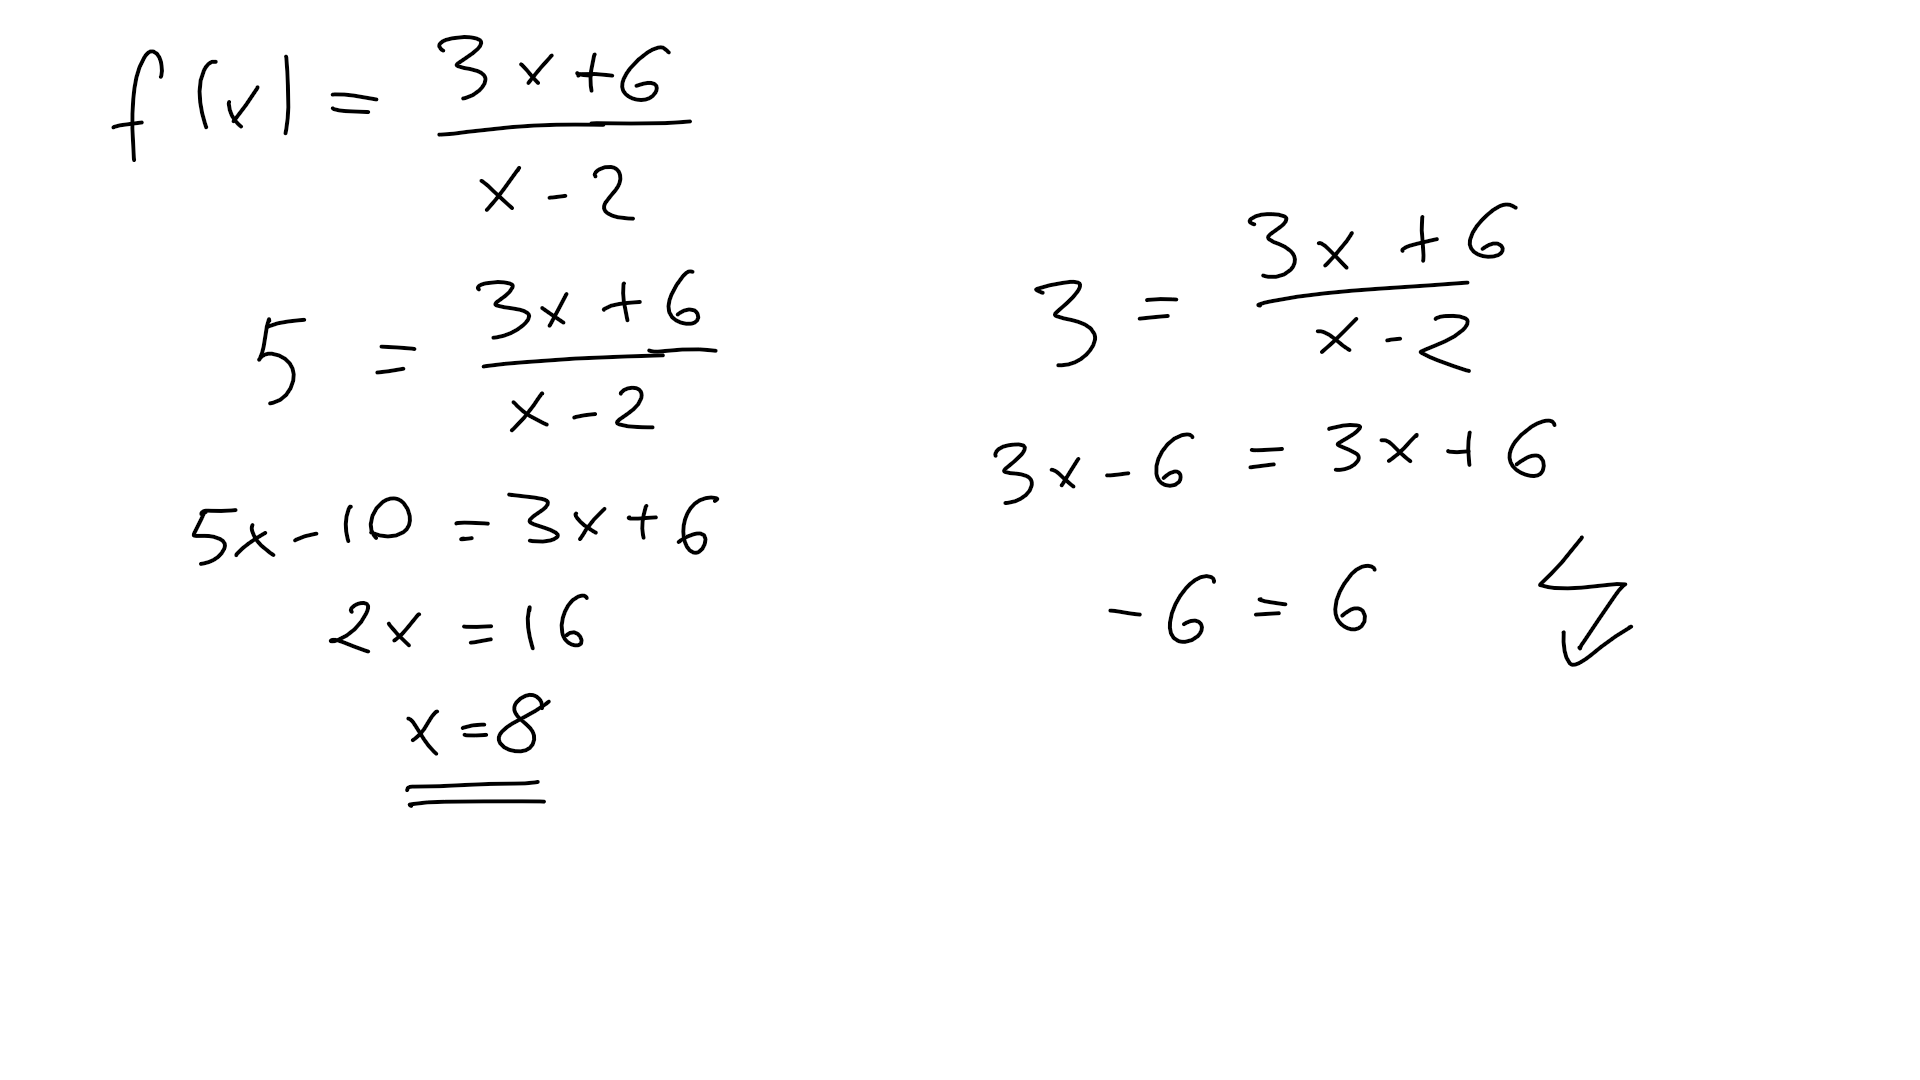 f(x) = (3x+6)/(x-2)
5 = (3x+6)/(x-2)
5x-10 = 3x+6
2x = 16
x = 8
3 = (3x+6)/(x-2)
3x-6 = 3x+6
-6 = 6 ↯